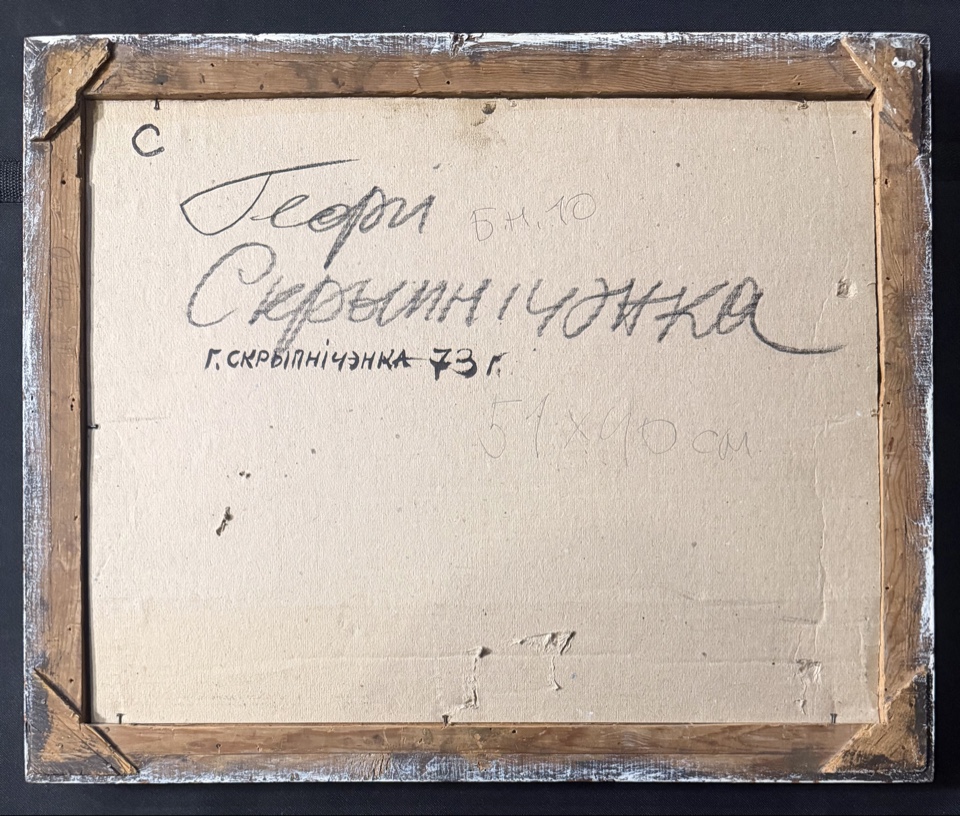 С
Геори Б.н. 10
Скрыпнічэнка
Г. СКРЫПНІЧЭНКА 73 г.
51 x 40 см